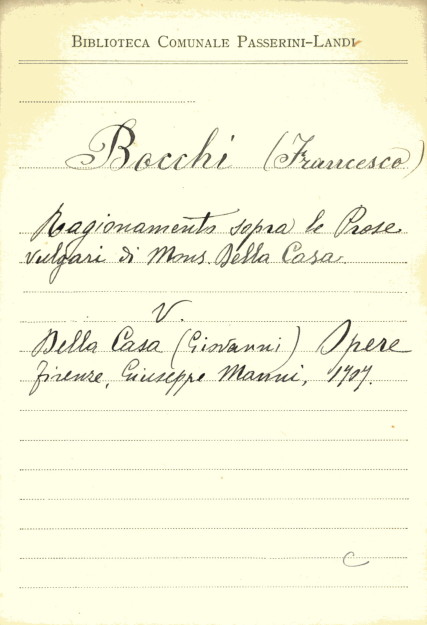 BIBLIOTECA COMUNALE PASSERINI-LANDI
Bocchi (Francesco)
Ragionamento sopra le Prose
vulgari di Mons. Della Casa
V.
Della Casa (Giovanni) Opere
Firenze, Giuseppe Manni, 1707.
C